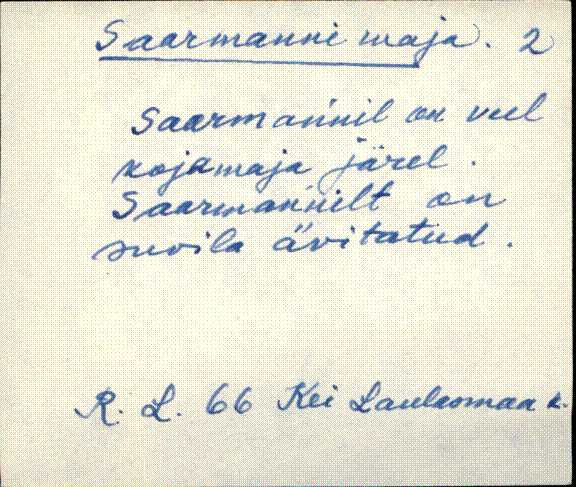 Saarmanni maja. 2
Saarmańnil on veel
kojamaja järel.
Saarmańnilt on
suvila ävitatud.
R. L. 66 Kei Laulasmaa k.